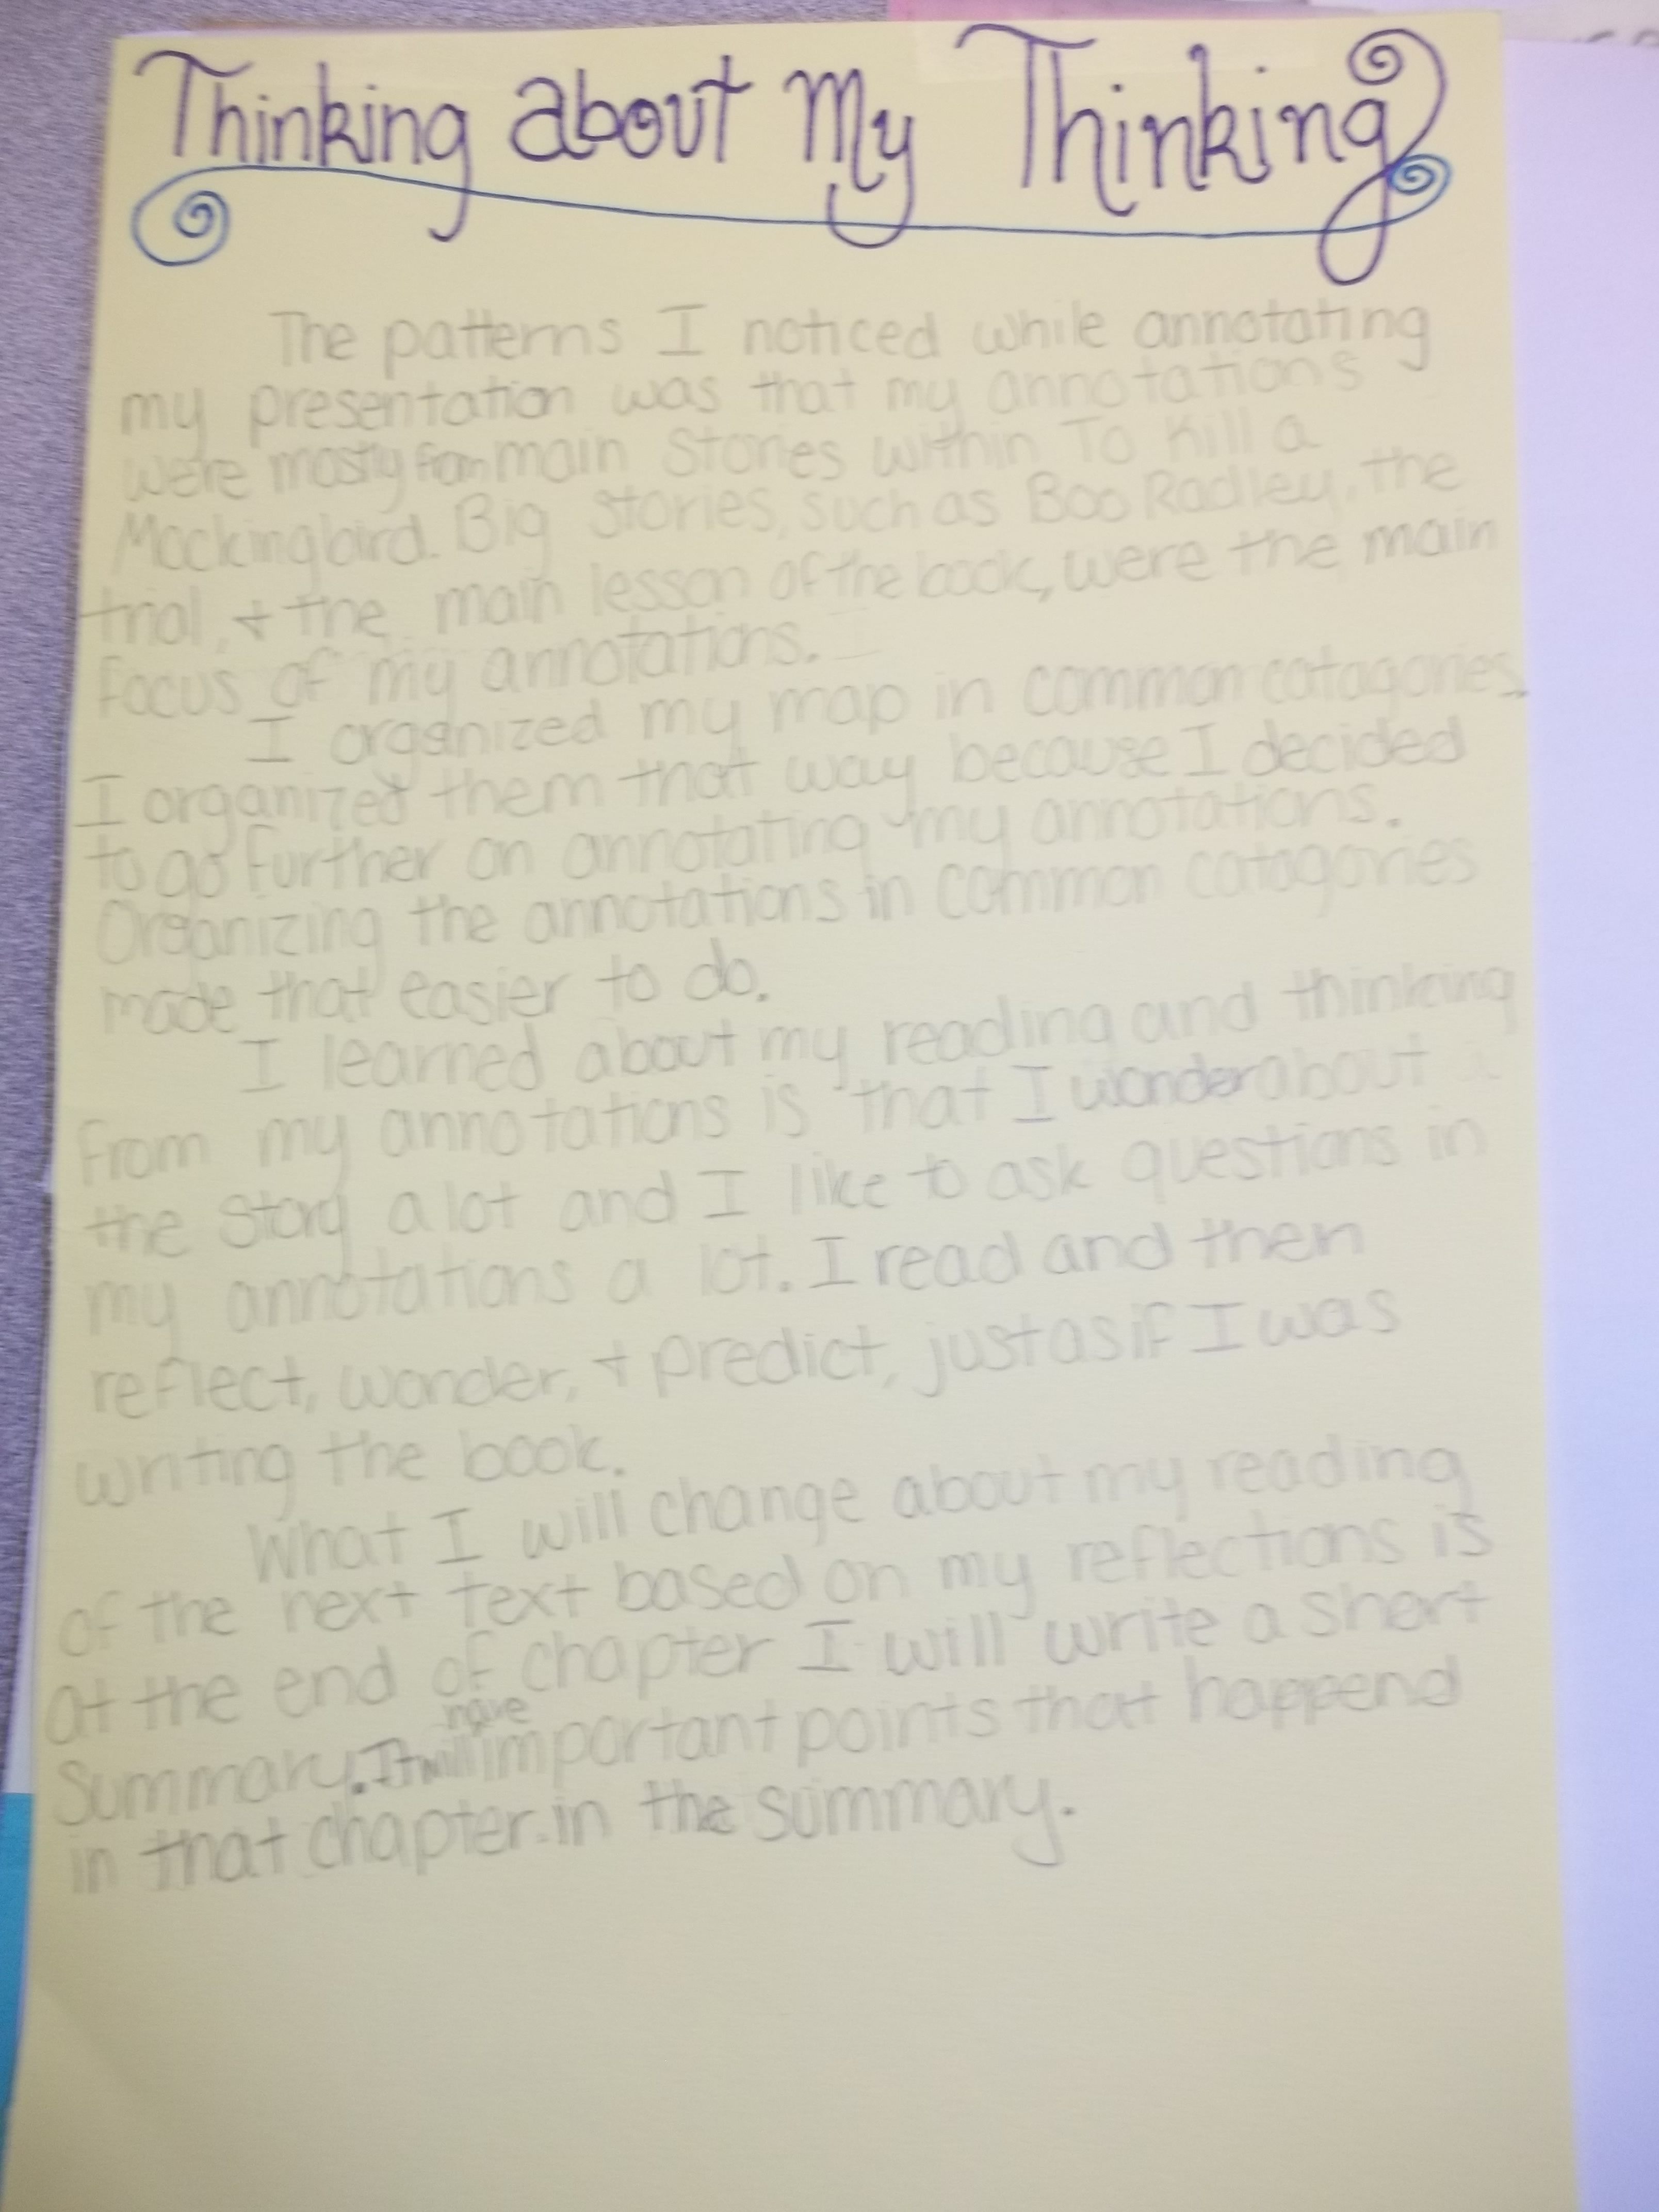 Thinking about My Thinking
The patterns I noticed while annotating
my presentation was that my annotations
were mostly from main Stories within To Kill a
Mockingbird. Big Stories, such as Boo Radley, the
trial, + the main lesson of the book, were the main
Focus of my annotations.
I organized my map in common catagories.
I organized them that way because I decided
to go further on annotating my annotations.
Organizing the annotations in common catagories
made that easier to do.
I learned about my reading and thinking
From my annotations is that I wonder about
the story a lot and I like to ask questions in
my annotations a lot. I read and then
reflect, wonder, + predict, just as if I was
writing the book.
What I will change about my reading
of the next text based on my reflections is
at the end of chapter I will write a short
Summary. It will have important points that happend
in that chapter in the summary.